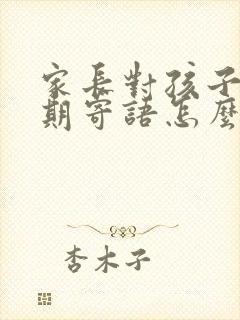 家長對孩子
期寄語怎麼
杏木子